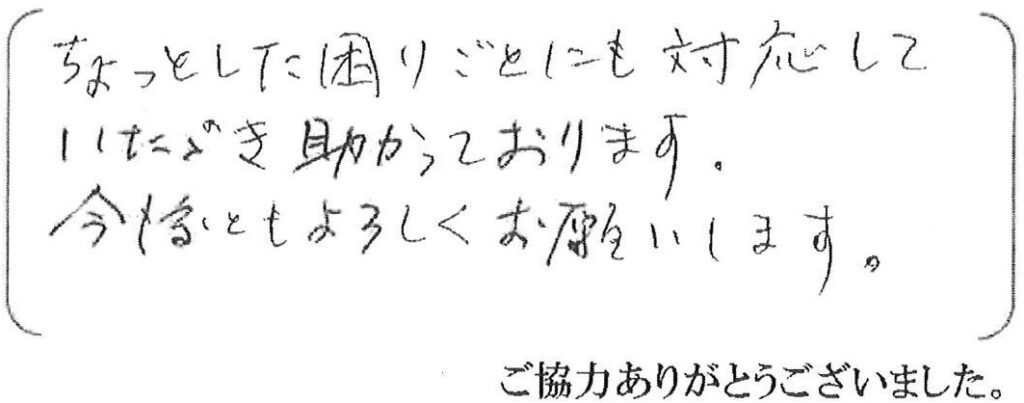 ちょっとした困りごとにも対応して
いただき助かっております。
今後ともよろしくお願いします。
ご協力ありがとうございました。